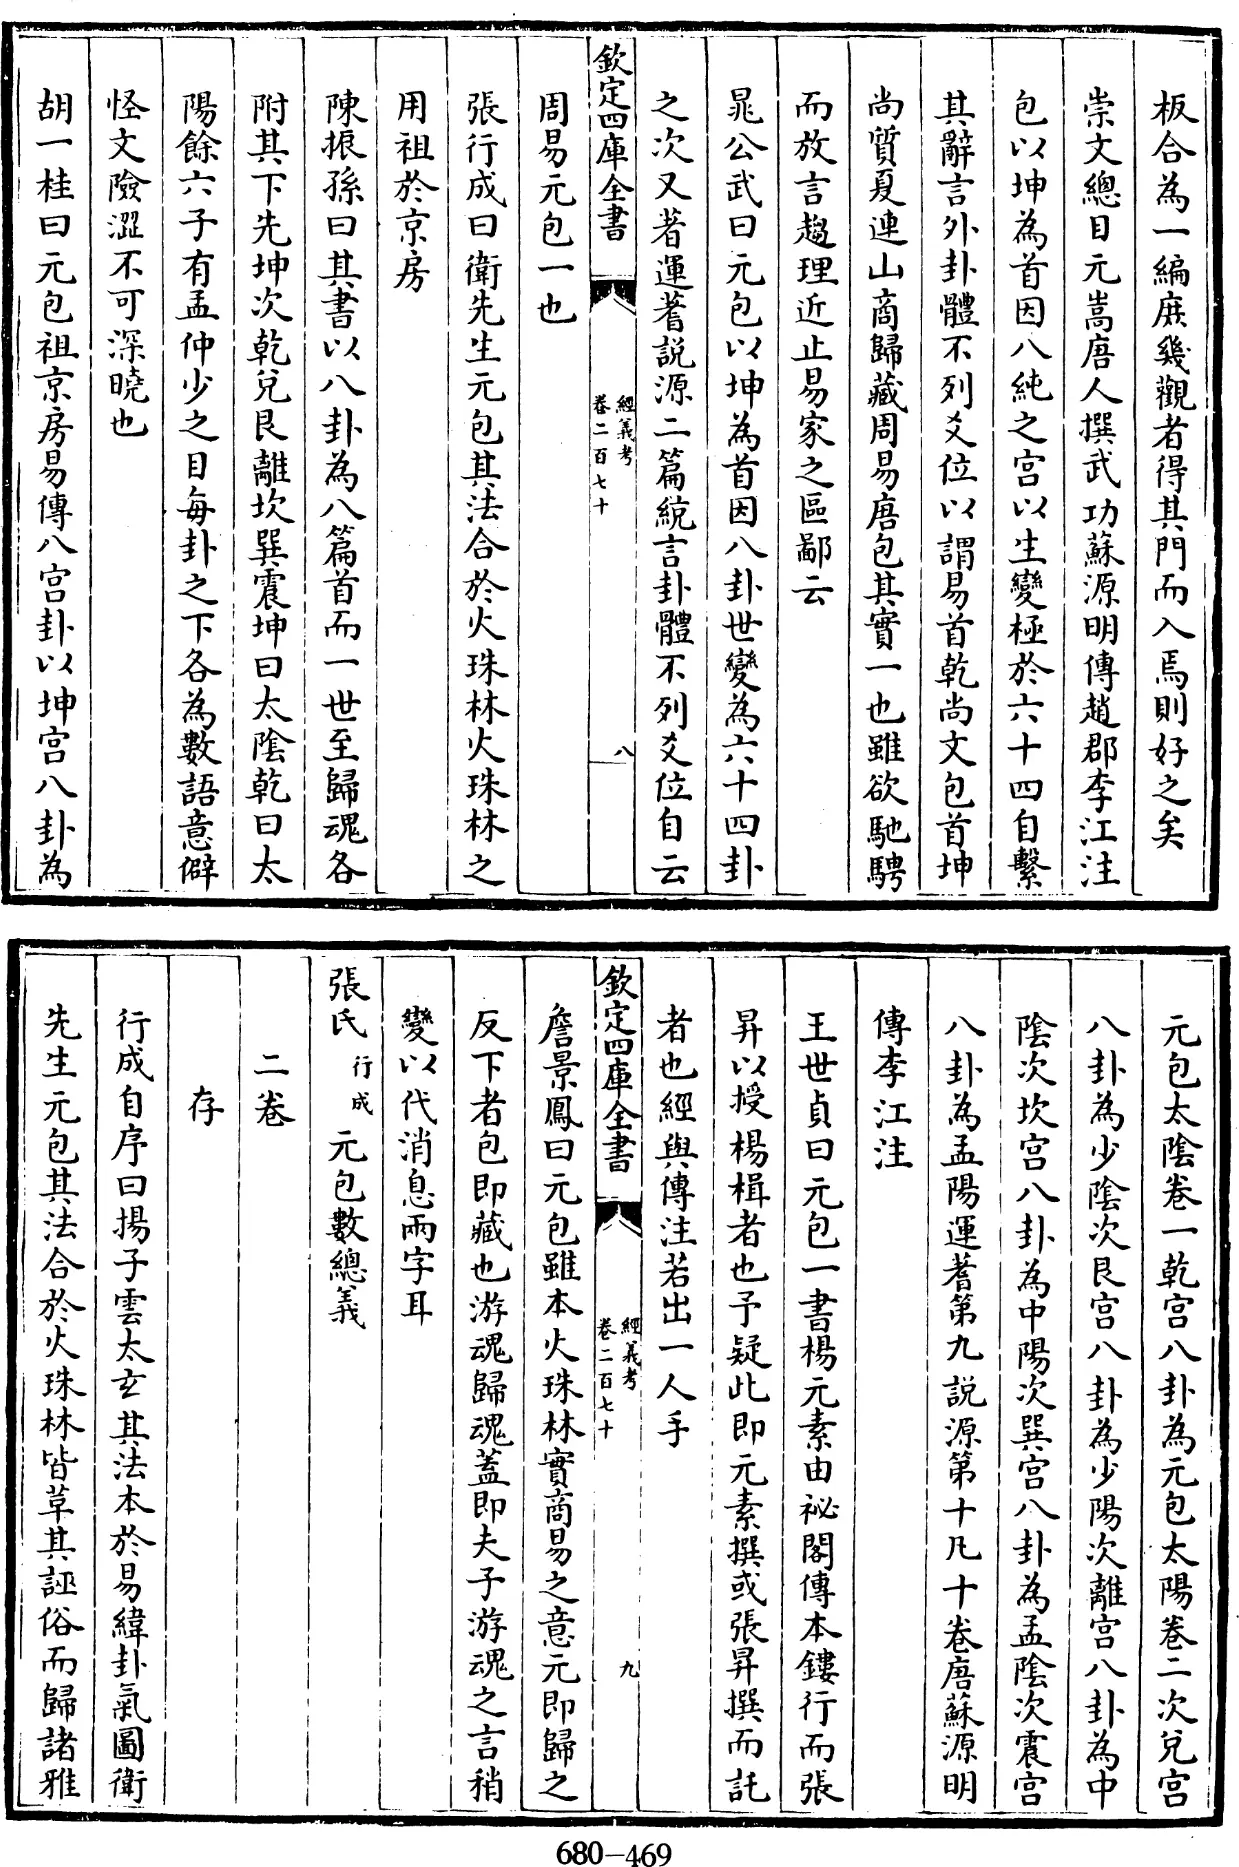 板合為一編庶幾觀者得其門而入焉則好之矣
崇文總目元嵩唐人撰武功蘇源明傳趙郡李江注
包以坤為首因八純之宮以生變極於六十四自繫
其辭言外卦體不列爻位以謂易首乾尚文包首坤
尚質夏連山商歸藏周易唐包其實一也雖欲馳騁
而放言趨理近止易家之區鄙云
晁公武曰元包以坤為首因八卦世變為六十四卦
之次又著運蓍説源二篇統言卦體不列爻位自云
欽定四庫全書
經義考
卷二百七十
八
周易元包一也
張行成曰衛先生元包其法合於火珠林火珠林之
用祖於京房
陳振孫曰其書以八卦為八篇首而一世至歸魂各
附其下先坤次乾兌艮離坎巽震坤曰太陰乾曰太
陽餘六子有孟仲少之目每卦之下各為數語意僻
怪文險澀不可深曉也
胡一桂曰元包祖京房易傳八宮卦以坤宮八卦為
元包太陰卷一乾宮八卦為元包太陽卷二次兌宮
八卦為少陰次艮宮八卦為少陽次離宮八卦為中
陰次坎宮八卦為中陽次巽宮八卦為孟陰次震宮
八卦為孟陽運蓍第九説源第十凡十卷唐蘇源明
傳李江注
王世貞曰元包一書楊元素由祕閣傳本鏤行而張
昇以授楊楫者也予疑此即元素撰或張昇撰而託
者也經與傳注若出一人手
欽定四庫全書
經義考
卷二百七十
九
詹景鳳曰元包雖本火珠林實商易之意元即歸之
反下者包即藏也游魂歸魂蓋即夫子游魂之言稍
變以代消息兩字耳
張氏行成元包數總義
二卷
存
行成自序曰揚子雲太玄其法本於易緯卦氣圖衛
先生元包其法合於火珠林皆革其誣俗而歸諸雅
680-469